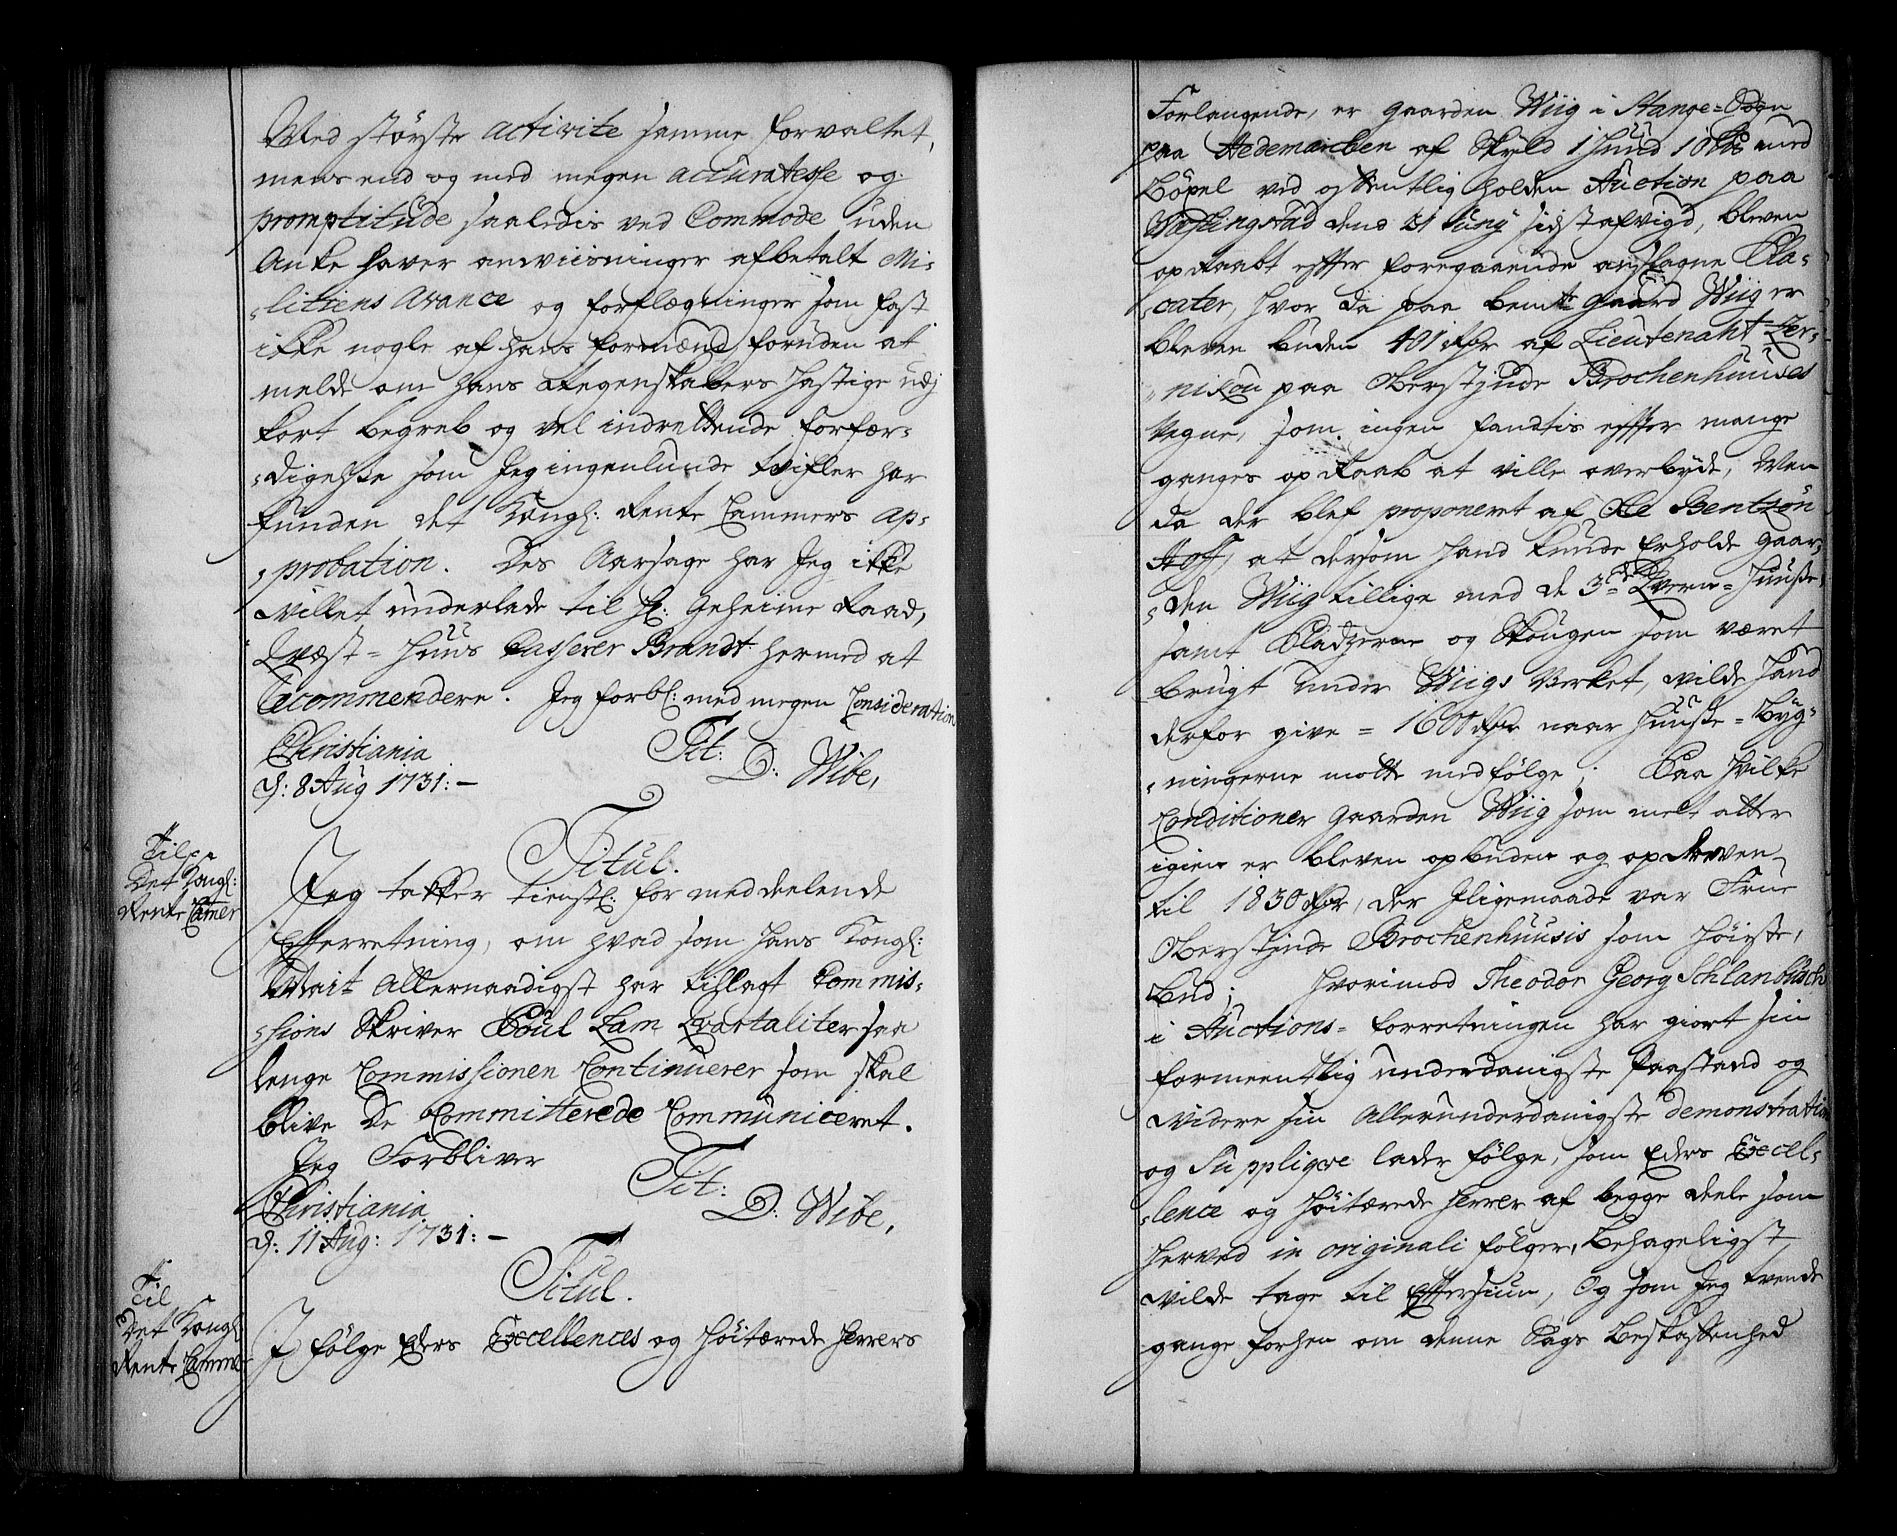 Med største activite samme forvaltet,
mens end og med megen accuratesse og
promptitude saaledis ved Commode uden
Anke haver anviisninger afbetalt Mi-
-litiens Avance og forflægninger som fast
ikke nogle af hans formænd foruden at
melde om hans Regenskabers hastige udj
kort begreb og vel indrettende forfær-
-digelse som Jeg ingenlunde tvifler har
funden det Kongl: Rente Cammers ap-
-probation. Des Aarsage har Jeg ikke
villet underlade til Hr: Geheime Raad,
Qvæst-Huus Casserer Brandt hermed at
recommendere. Jeg forbl: med megen Consideration
Christiania Tit:
d: 8 Aug 1731:- D: Wibe,
Til
Det Kongl:
Rente Camer
Titul.
Jeg takker tienstl: for meddeelende
Efterretning, om hvad som Hans Kongl:
Mait Allernaadigst har tillagt Commis-
-sions Skriver Poul Lam Qvartaliter saa
lenge Commissionen Continuerer som skal
blive De Committerede Communiceret.
Jeg Forbliver
Christiania Tit:
d: 11 Aug: 1731:- D: Wibe,
Til
Det Kongl:
Rente Cammer
Titul.
I følge Eders Excellences og Høitærede Herrers
Forlangende, er gaarden Wiig i Stange-Sogn
paa Hedemarchen af Skyld 1 Huud 1 med
Böxel ved offentlig holden Auction paa
dend 21 Juny sidst afvigd, bleven
opraabt efter foregaaende anslagne Pla-
-cater, hvor da paa bemte gaard Wiig er
bleven buden 401 Rdr af Lieutenant Zer-
-nikou paa Oberstinde Brochenhuuses
Vegne, som ingen fandtis efter mange
ganges opRaab at ville overbyde, Men
da der blef proponeret af Ole Bentzön
Hoff, at dersom hand kunde Erholde Gaar-
-den Wiig tillige med de 3de Qvern-Huuse
samt Pladzerne og Skougen som været
brugt under Wiigs Verket, vilde hand
derfor give = 1600 Rdr naar Huuse-Byg-
-ningerne motte medfølge; Paa hvilke
Conditioner gaarden Wiig som melt atter
igien er bleven opbuden og opdreven
til 1830 Rdr, der ligemaade var Frue
Oberstinde Brochenhuusis som Høiste,
Bud; hvorimod Theodor Georg Schlanbusch
i Auctions-forretningen har giort sin
formeentlig underdanigste Paastand og
videre sin Allerunderdanigste demonstration
og Suppliqve lader følge, som Eders Excel-
-lence og Høitærede Herrer af begge deele som
herved in originali følger, Behageligst
vilde tage til Eftersiun, Og som Jeg tvende
gange forhen om denne Sags Beskaffenhed